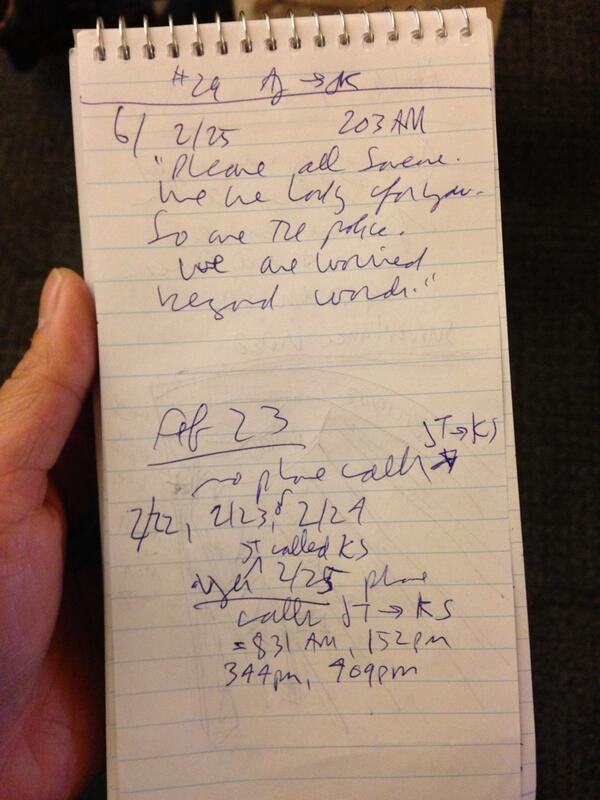 #29 → JK
6) 2/25 203 AM
"Please call someone.
We are looking for you.
So are the police.
We are worried
beyond words."
Feb 23
JT→KS
no phone calls
2/22, 2/23, or 2/24
JT called KS
2/25 phone
calls JT → KS
= 831 AM, 152pm
344pm, 409pm